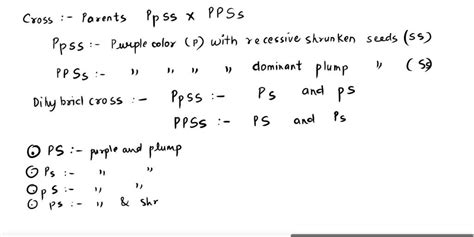 Cross :- Parents Ppss x PPSs
Ppss :- Purple color (P) with recessive shrunken seeds (ss)
PPSs :- " " " " dominant plump " (Ss)
Dihybrid cross :- Ppss :- Ps and ps
PPSs :- PS and Ps
① PS :- purple and plump
② Ps :- " "
③ pS :- " "
④ ps :- " & shr